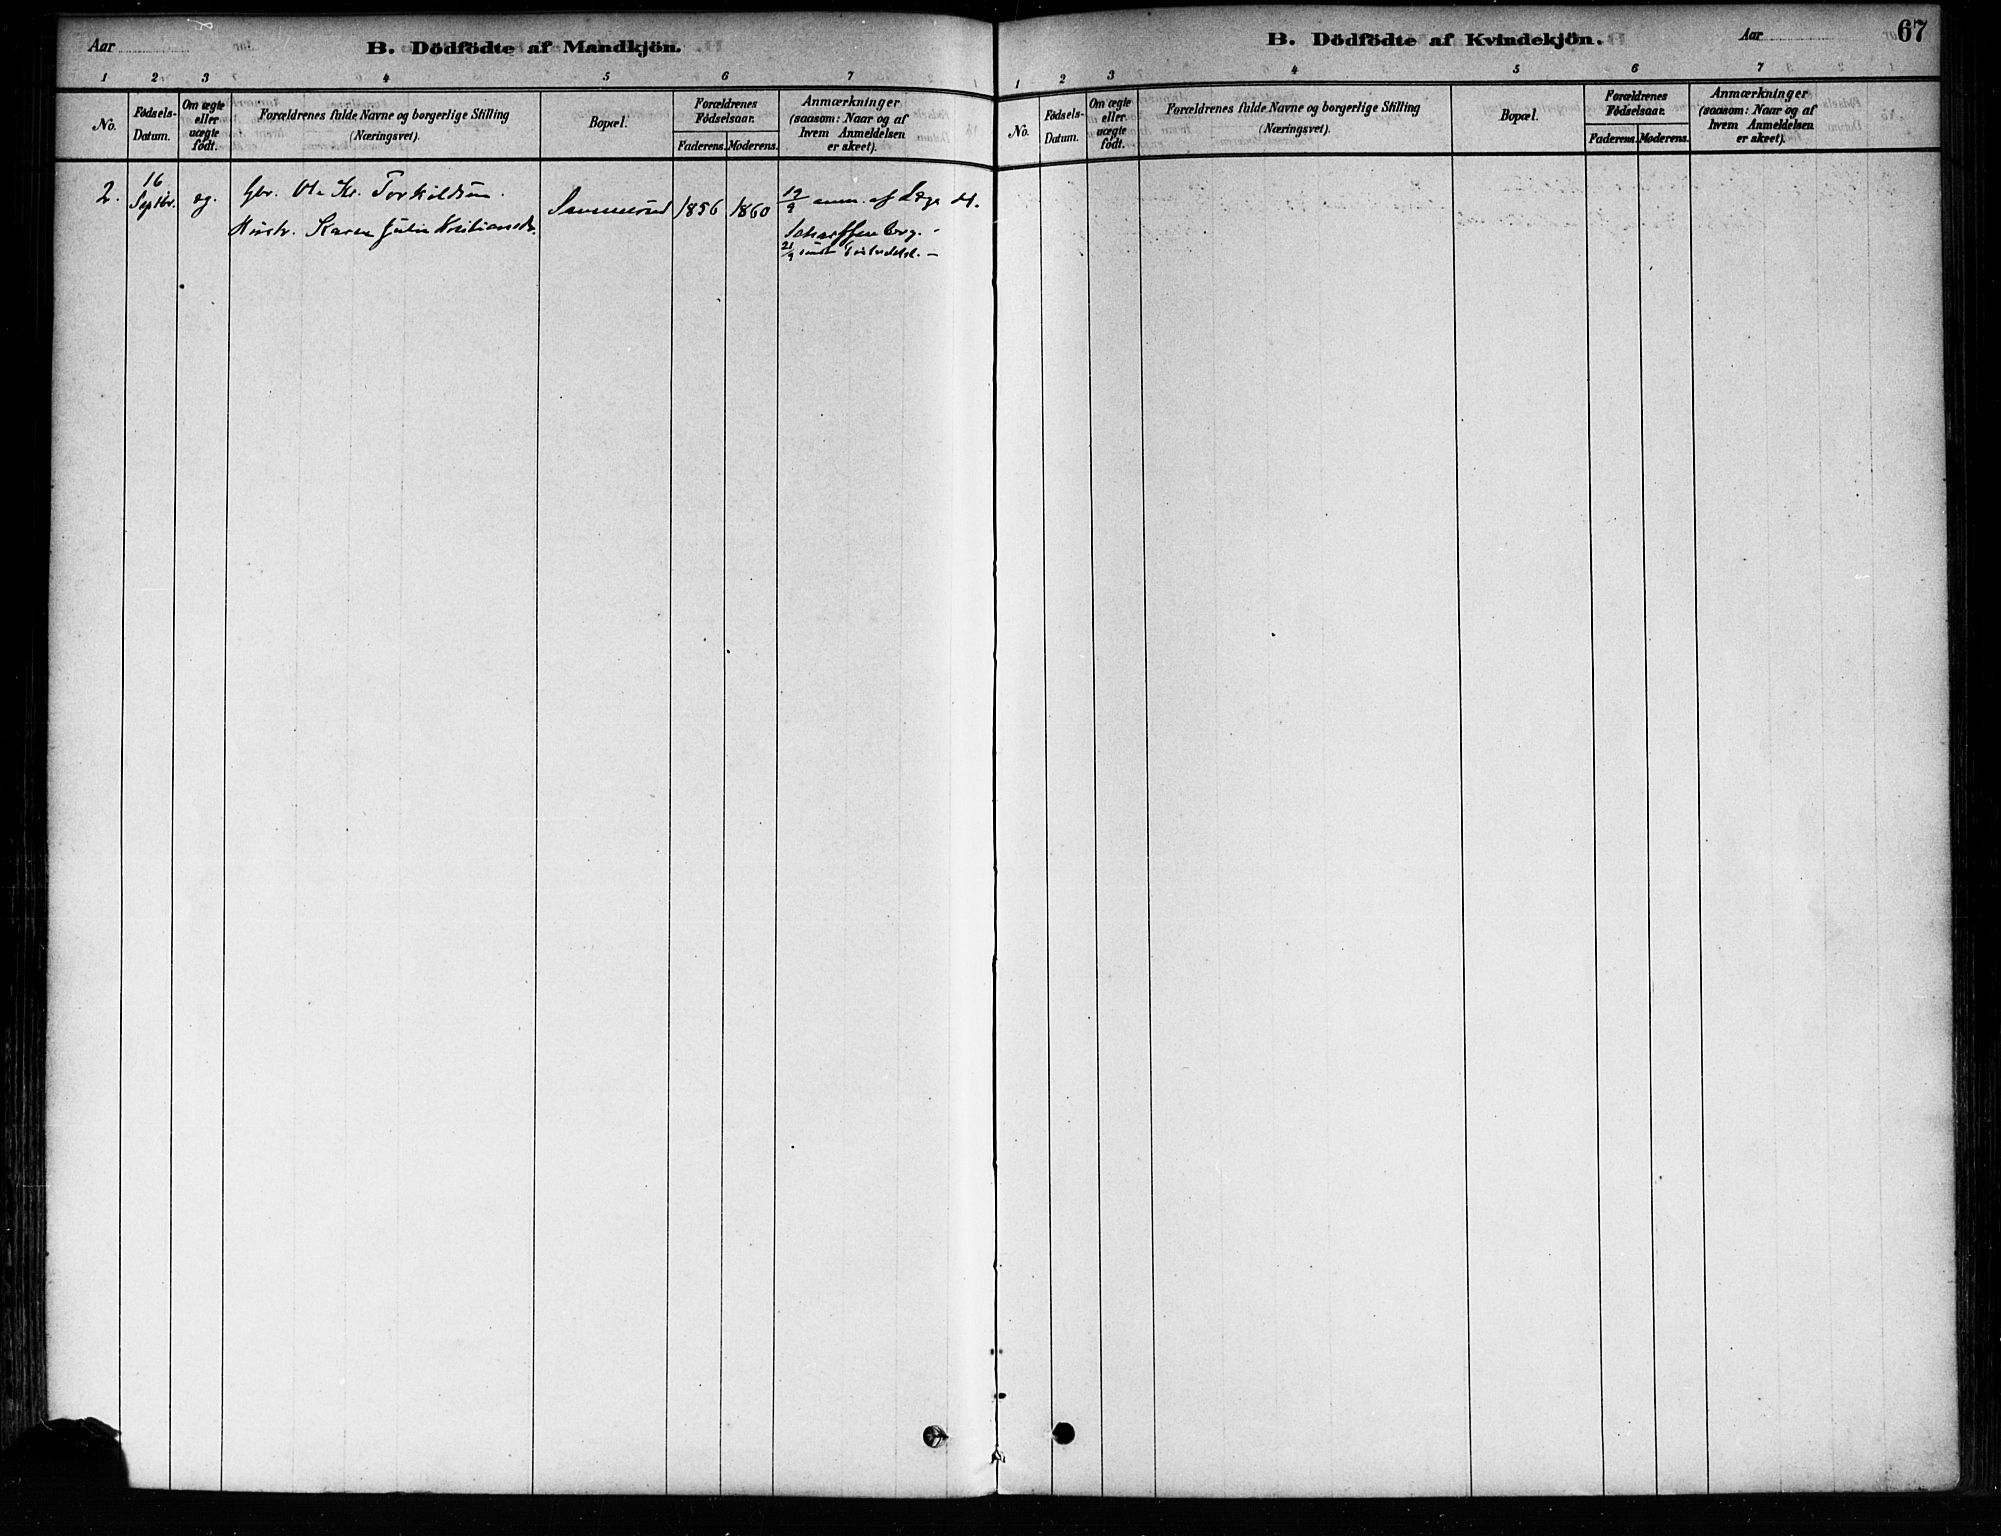 Aar
B. Dödfödte af Mandkjön.
1 2 3 4 5 6 7
No.
Födsels-Datum.
Om ægte eller uægte födt.
Forældrenes fulde Navne og borgerlige Stilling (Næringsvei).
Bopæl.
Forældrenes Födselsaar.
Faderens. Moderens.
Anmærkninger (saasom: Naar og af hvem Anmeldelsen er skeet).
2. 16 Septbr. æg. Gbr. Ole Kr. Torkildsen. Sammerud 1856 1860 19/9 anm. af Læge H.
Hustr. Karen Julie Kristiansdr. Scharffenberg. -
21/9 sendt Skiftedelst. -
B. Dödfödte af Kvindekjön.
Aar
67
1 2 3 4 5 6 7
No.
Födsels-Datum.
Om ægte eller uægte födt.
Forældrenes fulde Navne og borgerlige Stilling (Næringsvei).
Bopæl.
Forældrenes Födselsaar.
Faderens. Moderens.
Anmærkninger (saasom: Naar og af hvem Anmeldelsen er skeet).